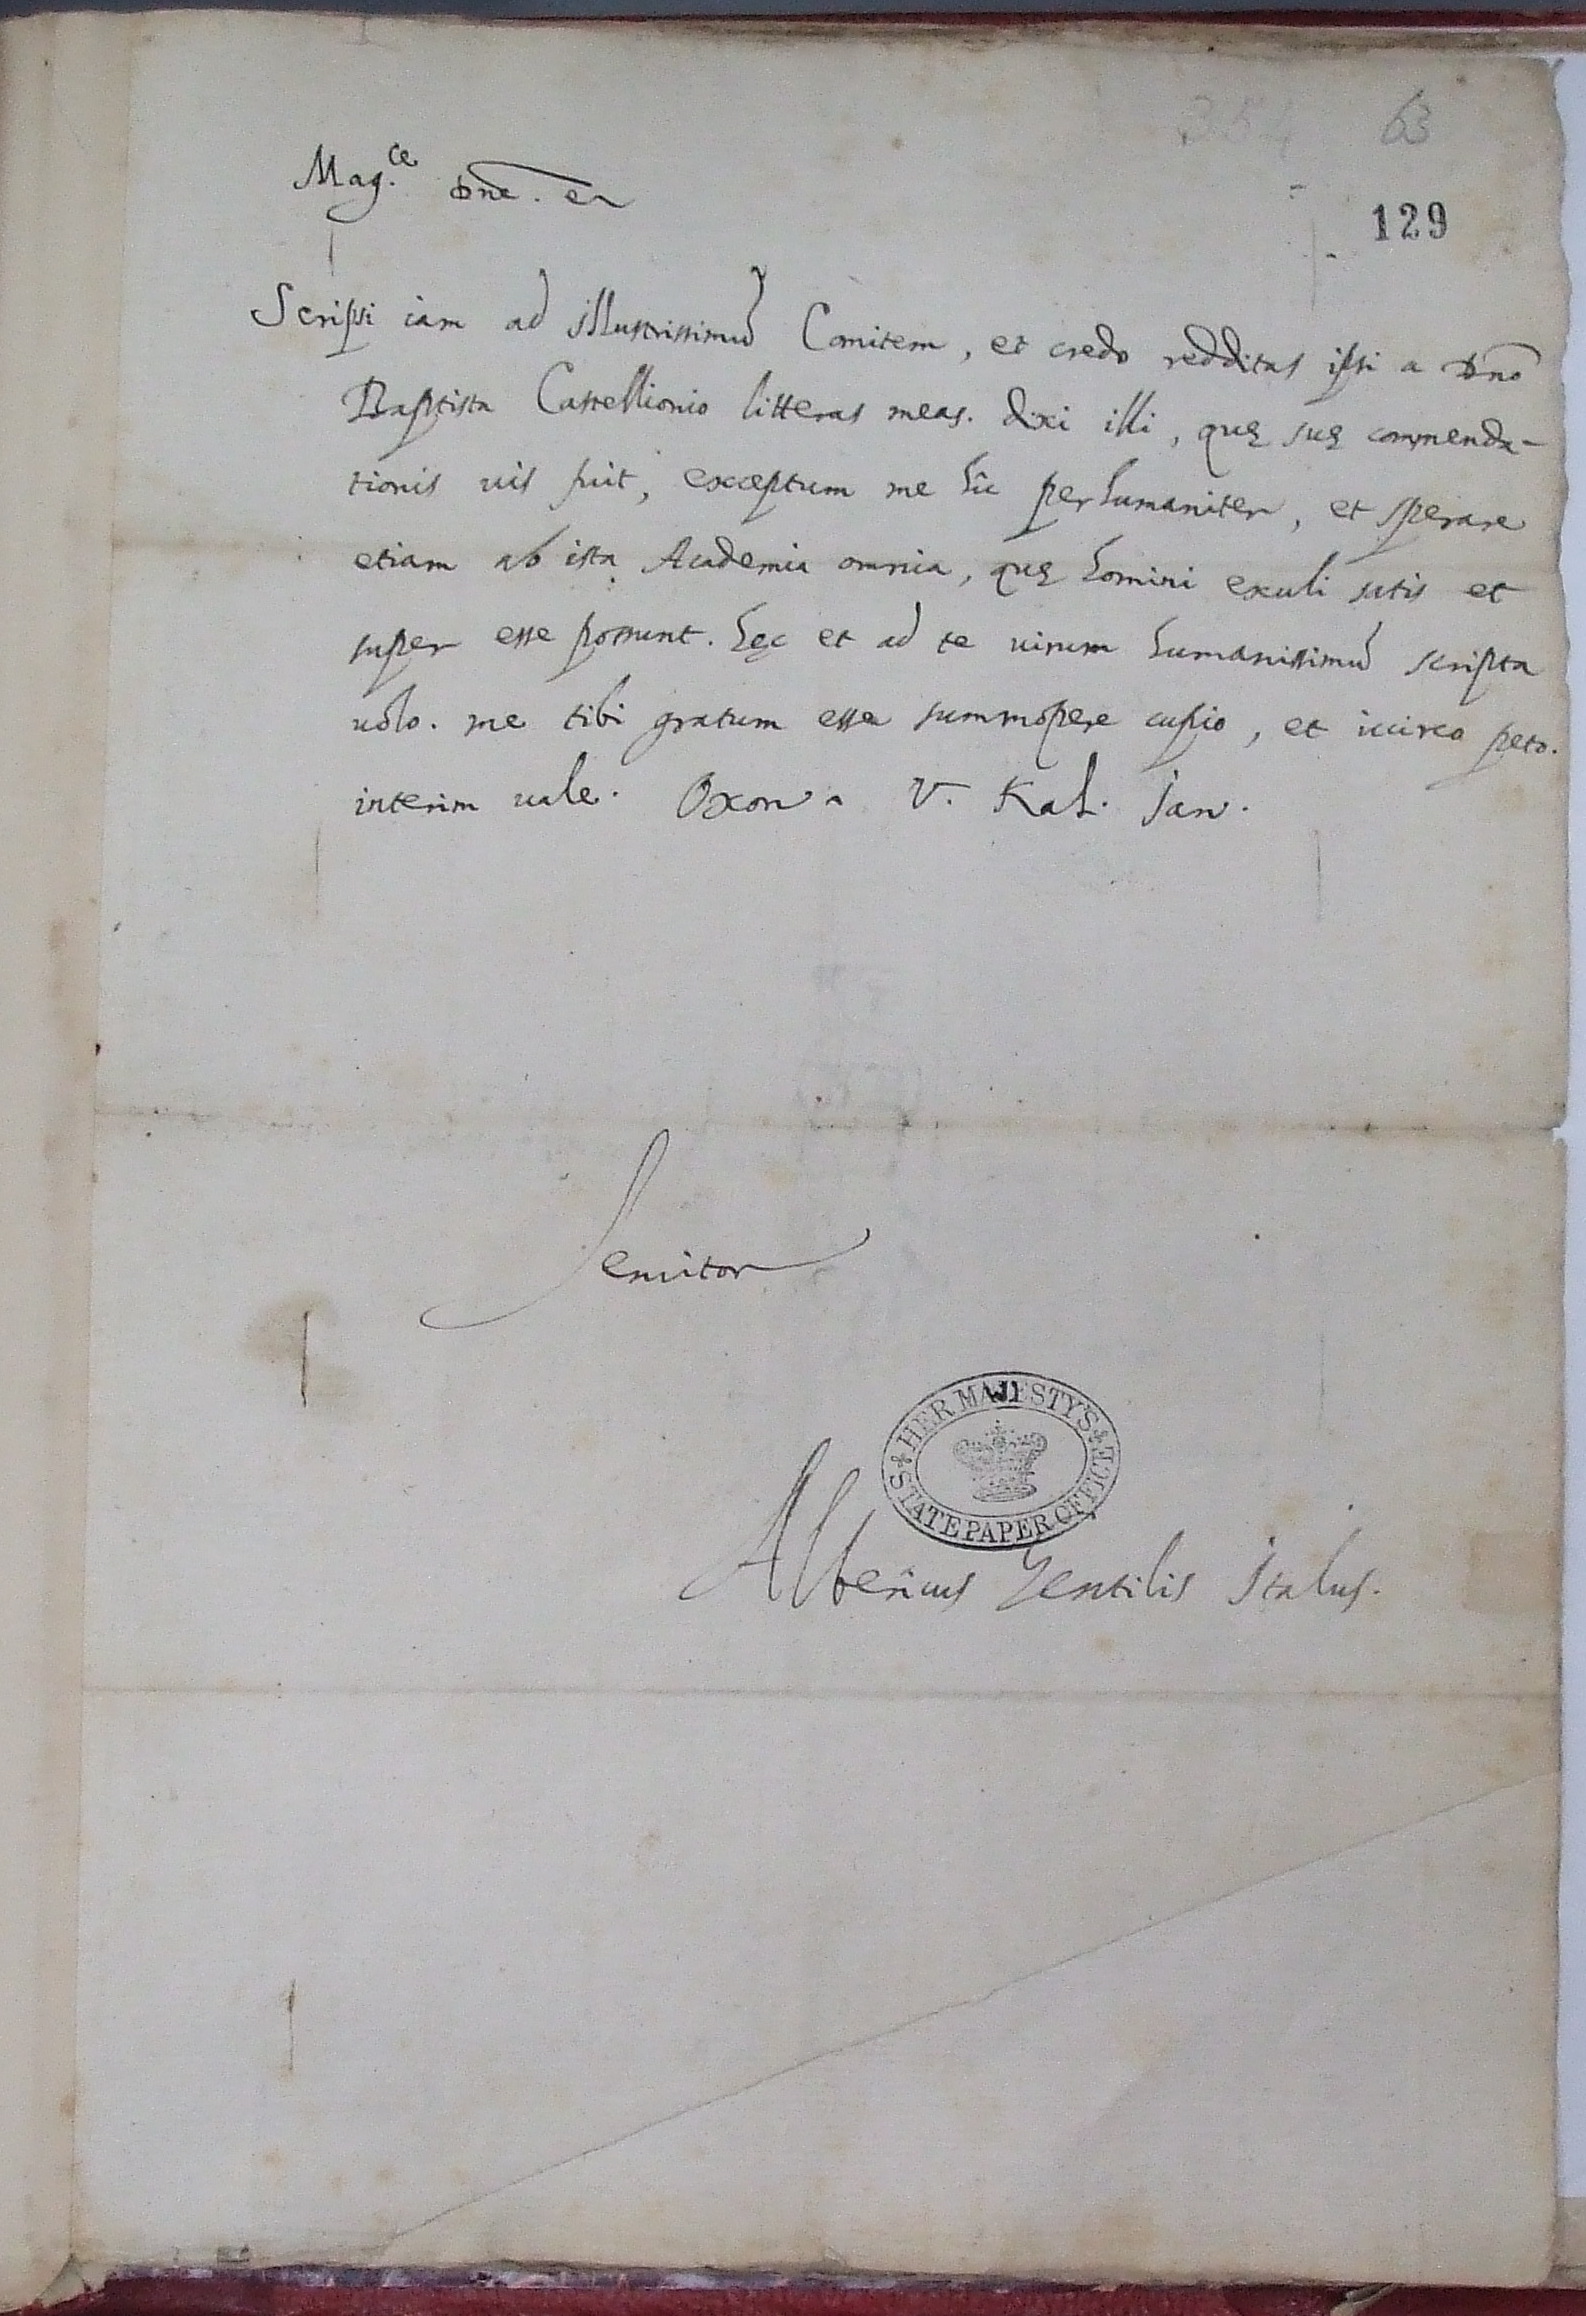 63
129
Mag.ce Dne. etc
Scripsi iam ad illustrissimū Comitem, et credo redditas ipsi a Dno
Baptista Castellionio litteras meas. dixi illi, quę suę commenda-
tionis vis fuit, exceptum me hîc perhumaniter, et sperare
etiam ab ista Academia omnia, quę homini exuli satis et
super esse possunt. hęc et ad te uirum humanissimū scripta
uolo. me tibi gratum esse summopere cupio, et iccirco peto.
interim uale. Oxon. V. Kal. Jan.
Seruitor
HER MAJESTY'S STATE PAPER OFFICE
Albericus Gentilis Italus.